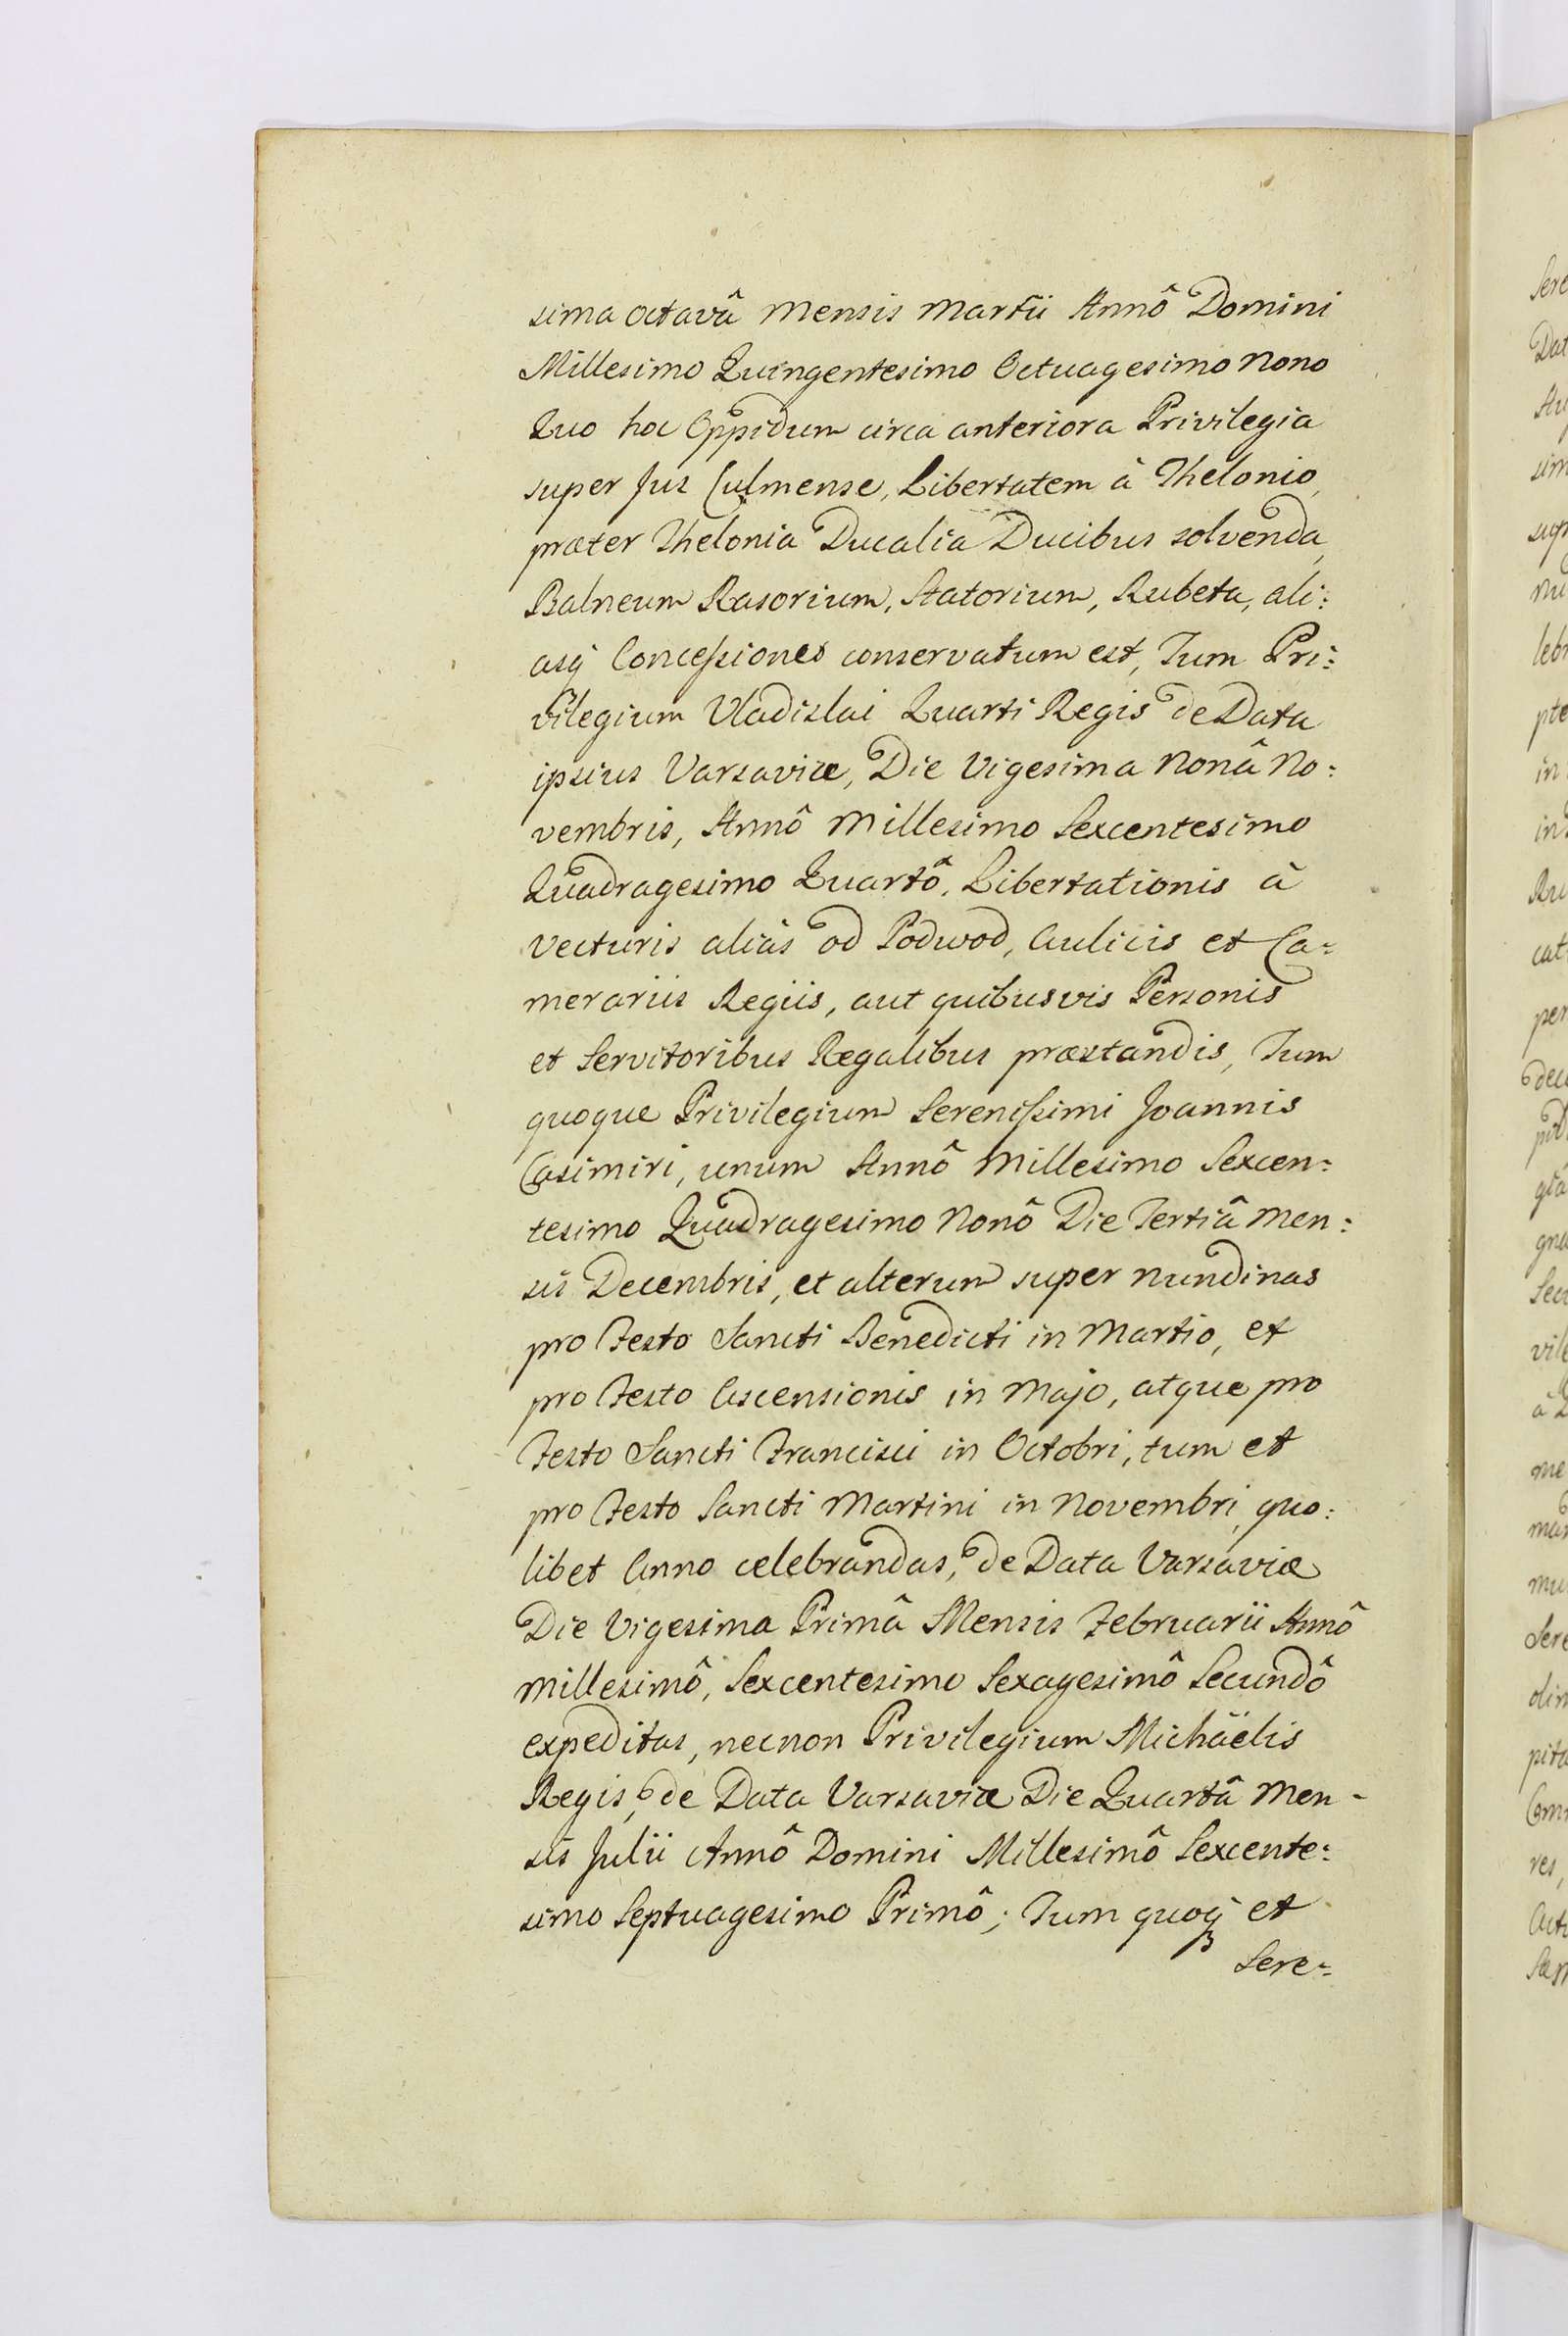 sima octavâ Mensis Martii Annô Domini
Millesimo Quingentesimo Octuagesimo Nono
Quo hoc Oppidum circa anteriora Privilegia
super Jus Culmense, Libertatem à Thelonio,
præter Thelonia Ducalia Ducibus solvenda,
Balneum Rasorium, Statorium, Rubeta, ali:
asq̄ Conceſsiones conservatum est, Tum Pri:
vilegium Vladislai Quarti Regis de Data
ipsius Varsaviæ, Die Vigesima Nonâ No:
vembris, Annô Millesimo Sexcentesimo
Quadragesimo Quartô, Libertationis à
Vecturis aliàs od Podwod, Aulicis et Ca:
merariis Regiis, aut quibusvis Personis
et Servitoribus Regalibus præstandis, Tum
quoque Privilegium Sereniſsimi Joannis
Casimiri, unum Annô Millesimo Sexcen:
tesimo Quadragesimo Nonô Die Tertiâ Men:
sis Decembris, et alterum super Nundinas
pro Festo Sancti Benedicti in Martio, et
pro Festo Ascensionis in Majo, atque pro
Festo Sancti Francisci in Octobri, tum et
pro Festo Sancti Martini in Novembri, quo:
libet Anno celebrandas, de Data Varsaviæ
Die Vigesima Primâ Mensis Februarii Annô
Millesimô, Sexcentesimo Sexagesimô Secundô
expeditas, necnon Privilegium Michaëlis
Regis, de Data Varsaviæ Die Quartâ Men-
sis Julii Annô Domini Millesimô Sexcente:
simo Septuagesimo Primô; Tum quoq̄ et
Sere: